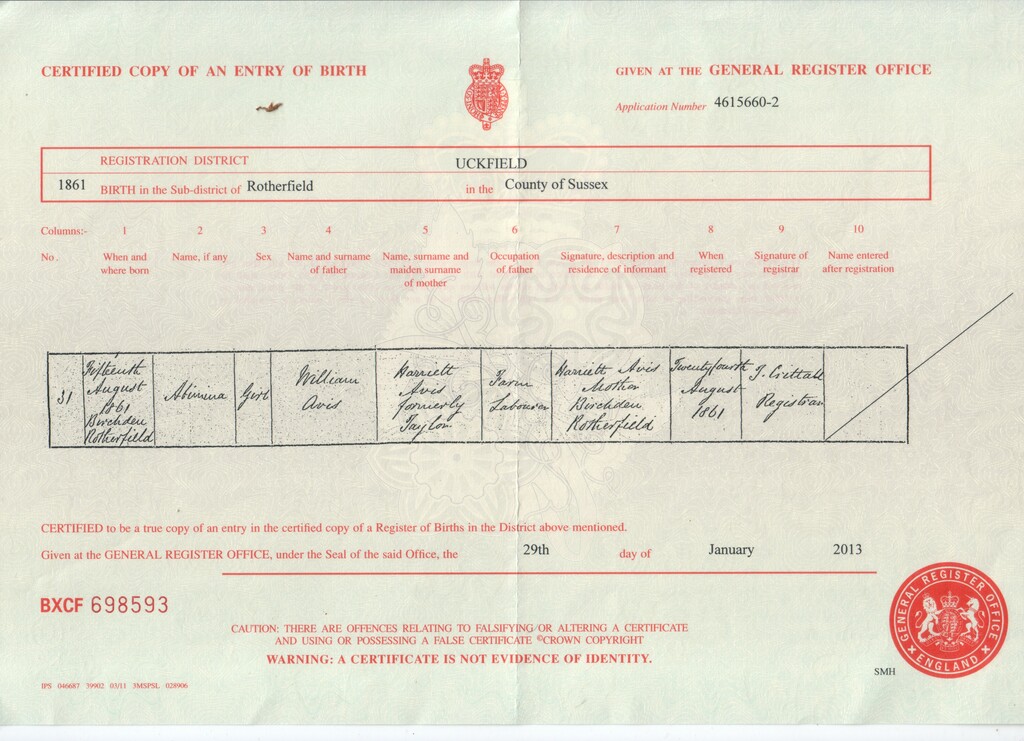 CERTIFIED COPY OF AN ENTRY OF BIRTH
GIVEN AT THE GENERAL REGISTER OFFICE
Application Number 4615660-2
REGISTRATION DISTRICT UCKFIELD
1861 BIRTH in the Sub-district of Rotherfield in the County of Sussex
Columns:- 1 2 3 4 5 6 7 8 9 10
No. When and where born
Name, if any
Sex
Name and surname of father
Name, surname and maiden surname of mother
Occupation of father
Signature, description and residence of informant
When registered
Signature of registrar
Name entered after registration
31
Fifteenth
August
1861
Birchden
Rotherfield
Girl
William
Avis
Harriett
Avis
formerly
Taylor
Farm
Labourer
Harriett Avis
Mother
Birchden
Rotherfield
Twenty fourth
August
1861
Registrar
CERTIFIED to be a true copy of an entry in the certified copy of a Register of Births in the District above mentioned.
Given at the GENERAL REGISTER OFFICE, under the Seal of the said Office, the 29th day of January 2013
BXCF 698593
CAUTION: THERE ARE OFFENCES RELATING TO FALSIFYING OR ALTERING A CERTIFICATE
AND USING OR POSSESSING A FALSE CERTIFICATE ©CROWN COPYRIGHT
WARNING: A CERTIFICATE IS NOT EVIDENCE OF IDENTITY.
GENERAL REGISTER OFFICE
ENGLAND
SMH
IPS 046687 39902 03/11 3MSPSL 028906